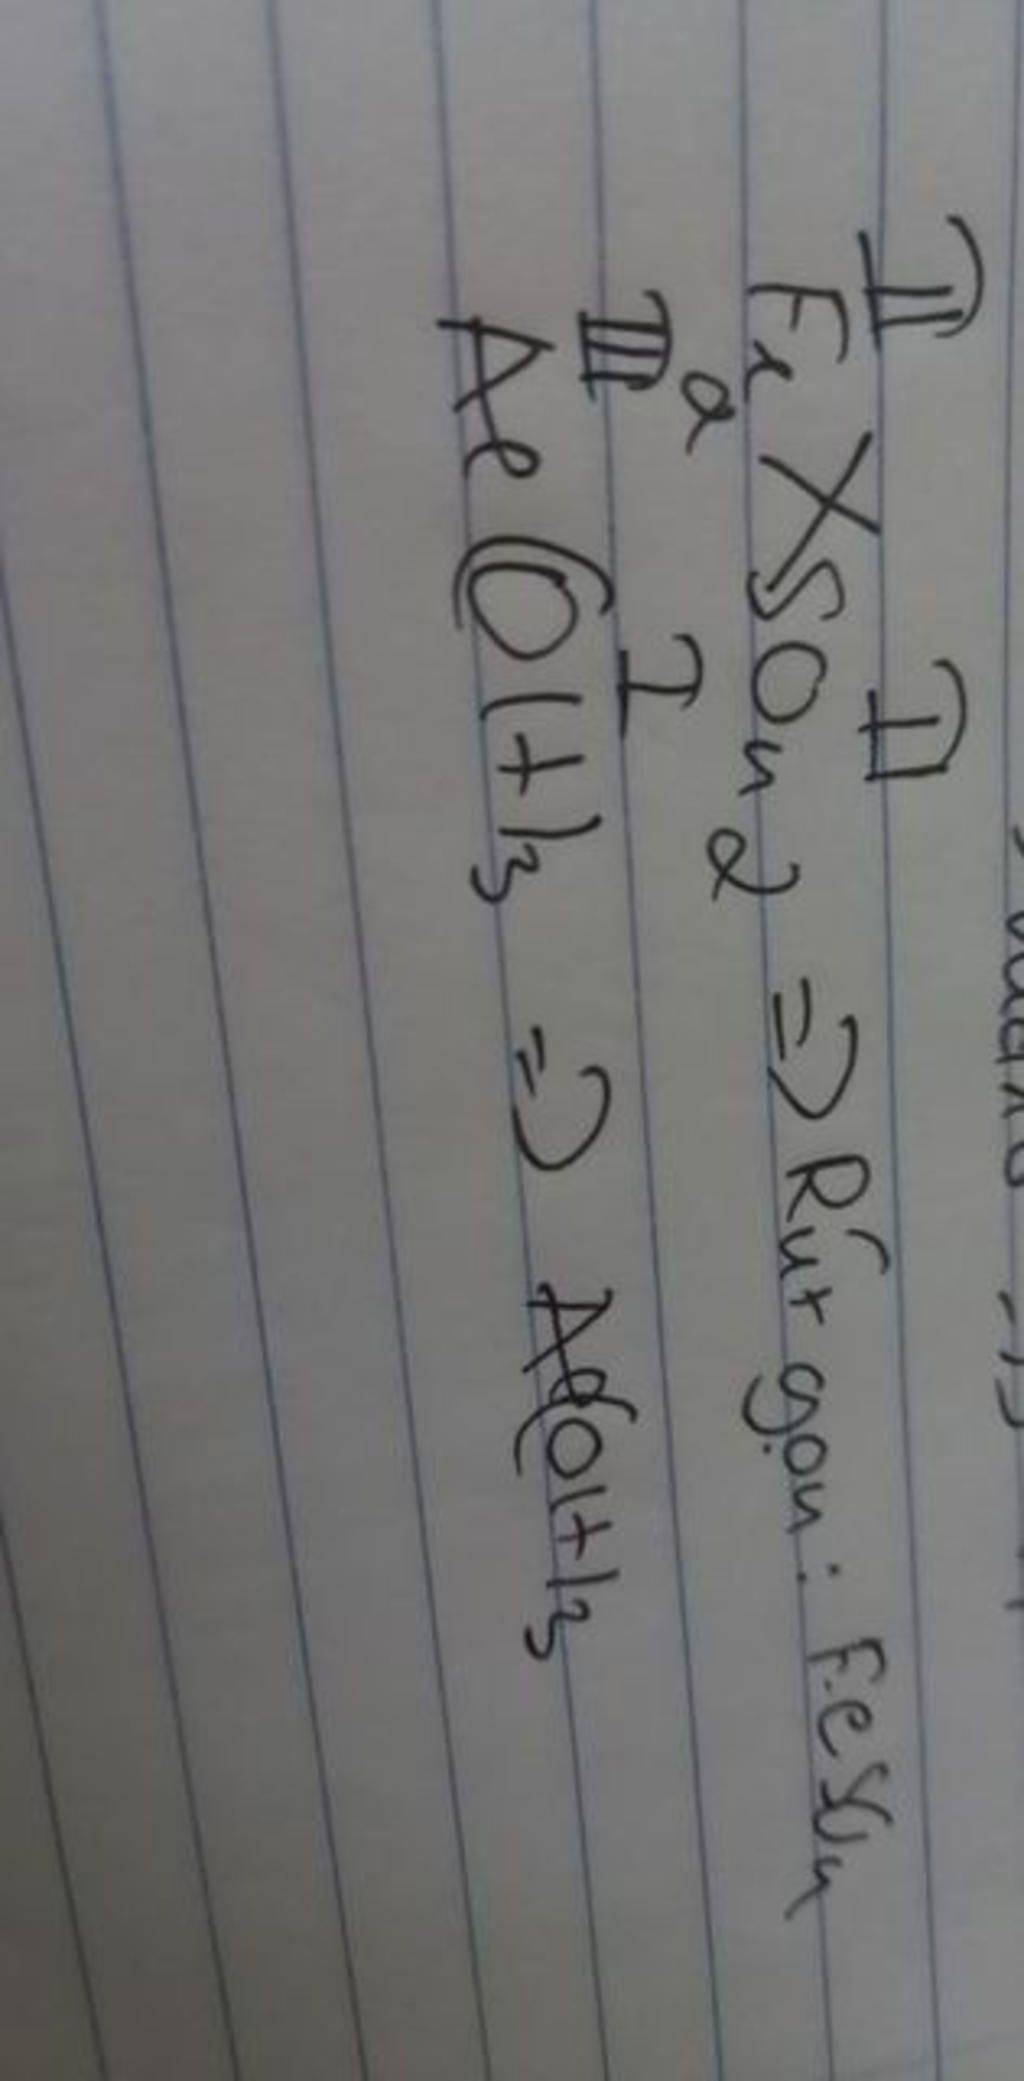 II II
Fe 2 X SO4 2 => Rút gọn: FeSO4
III I
Al(OH)3 => Al(OH)3